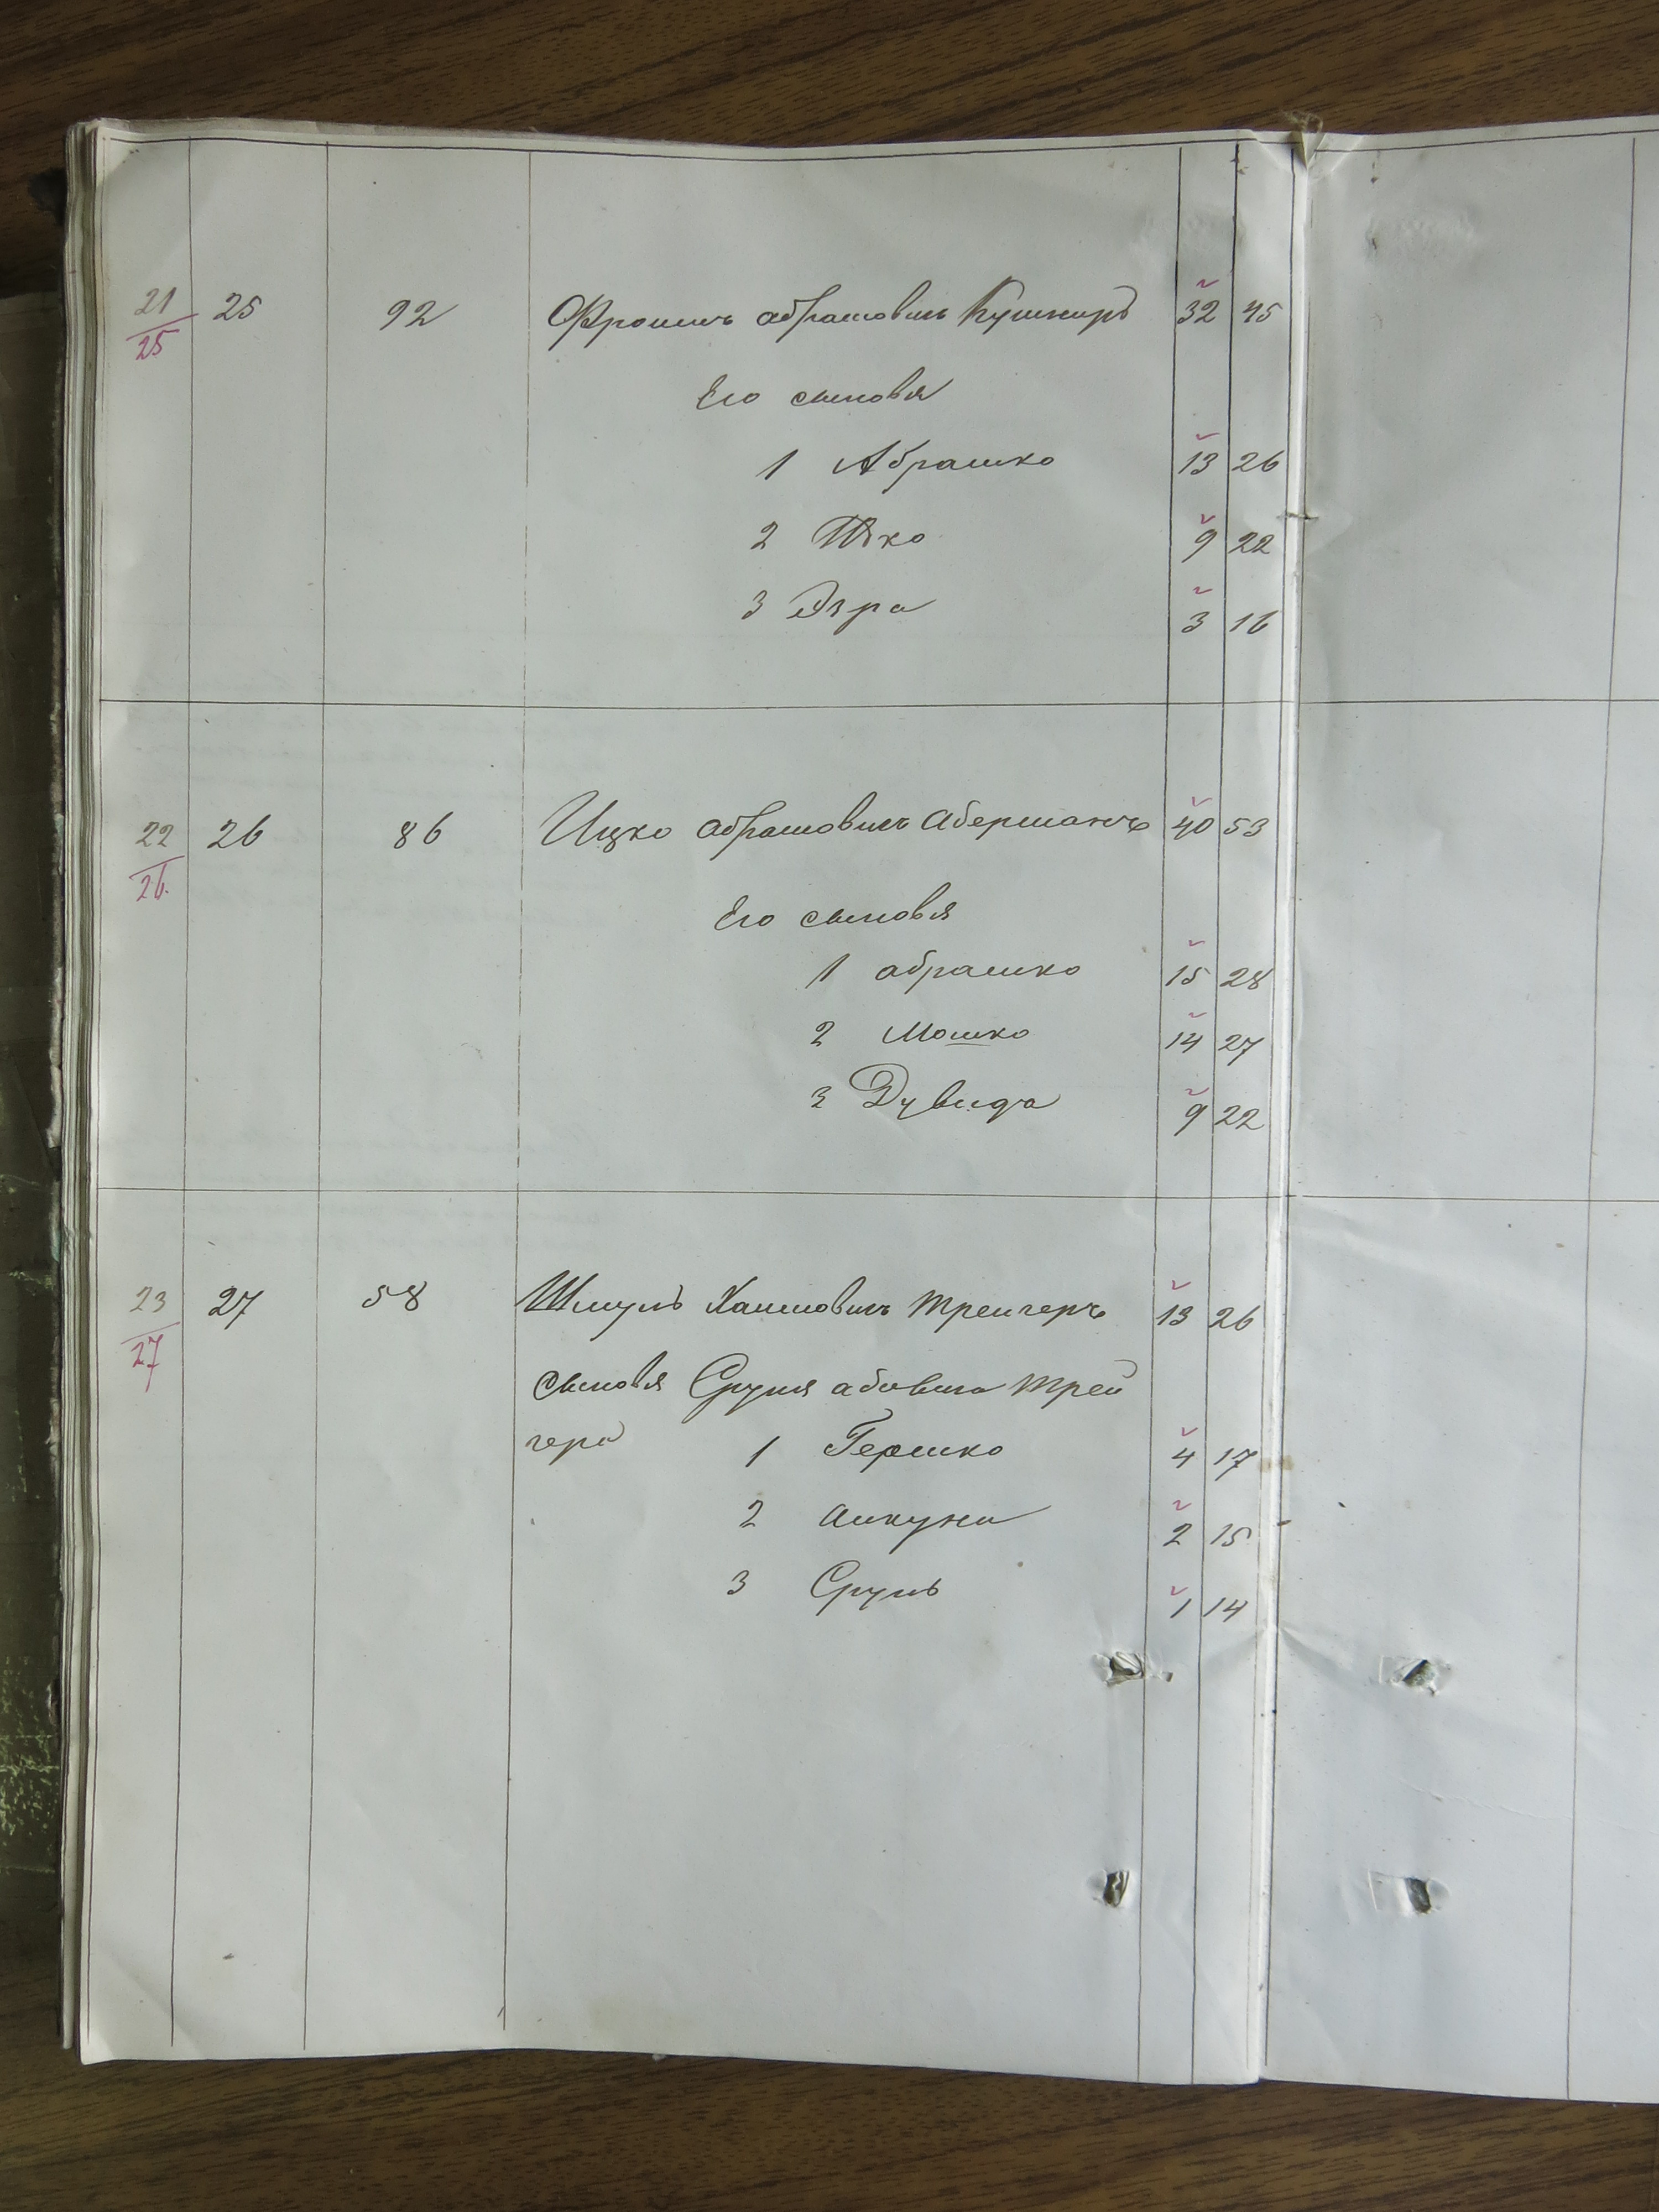 21 25 92 Фроимъ абрамовичъ Кушниръ 32 45
25
Его сыновя
1 Абрашко 13 26
2 Ицко 9 22
3 Эзра 3 16
22 26 86 Ицко абрамовичъ аберманъ 40 53
26
Его сыновя
1 абрашко 15 28
2 Мошко 14 27
3 Дувидъ 9 22
23 27 58 Шмуль Хаимовичъ трейгеръ 13 26
27
сыновя Сруля абовича трей
гера 1 Гершко 4 17
2 2 15
3 Сруль 1 14